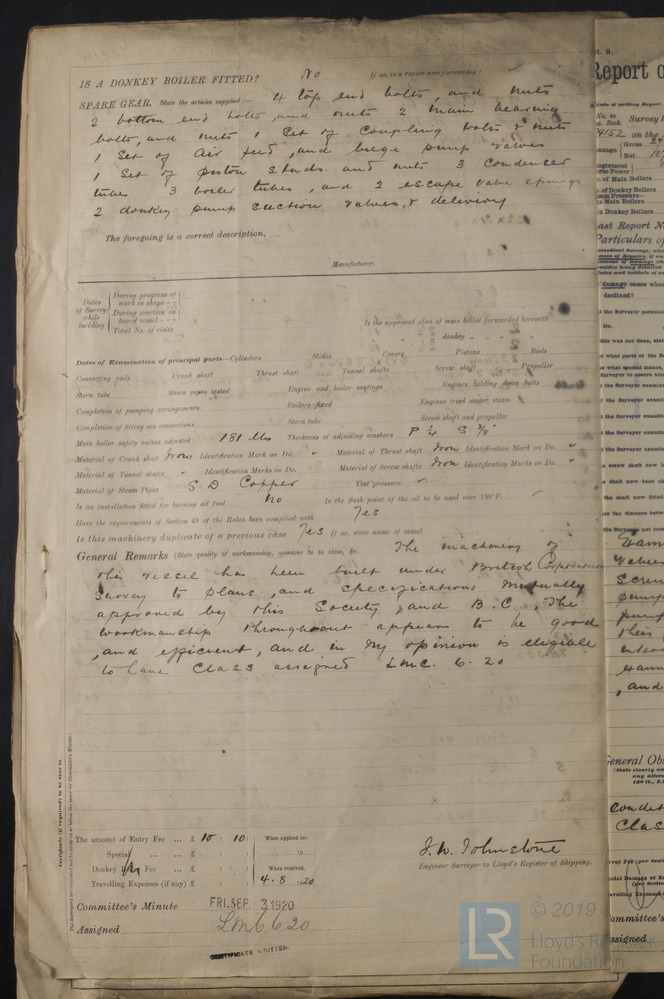 IS A DONKEY BOILER FITTED? No If so, is a report now forwarded?
SPARE GEAR. State the articles supplied:— 4 top end bolts, and nuts
2 bottom end bolts and nuts 2 main bearing
bolts, and nuts 1 Set of Coupling bolts & nuts
1 Set of Air feed, and bilge pump valves
1 Set of piston studs and nuts 3 Condenser
tubes 3 boiler tubes, and 2 escape valve springs
2 donkey pump suction valves, & delivery
The foregoing is a correct description,
Manufacturer.
Dates of Survey while building
During progress of work in shops - -
During erection on board vessel - - -
Total No. of visits
Is the approved plan of main boiler forwarded herewith
" " " donkey " " "
Dates of Examination of principal parts—Cylinders Slides Covers Pistons Rods
Connecting rods Crank shaft Thrust shaft Tunnel shafts Screw shaft Propeller
Stern tube Steam pipes tested Engine and boiler seatings Engines holding down bolts
Completion of pumping arrangements Boilers fixed Engines tried under steam
Completion of fitting sea connections Stern tube Screw shaft and propeller
Main boiler safety valves adjusted 181 lbs Thickness of adjusting washers P ¼ S ⅜"
Material of Crank shaft Iron Identification Mark on Do. " Material of Thrust shaft Iron Identification Mark on Do. "
Material of Tunnel shafts " Identification Marks on Do. Material of Screw shafts Iron Identification Marks on Do. "
Material of Steam Pipes S D Copper Test pressure "
Is an installation fitted for burning oil fuel no Is the flash point of the oil to be used over 150°F.
Have the requirements of Section 49 of the Rules been complied with Yes
Is this machinery duplicate of a previous case Yes If so, state name of vessel
General Remarks (State quality of workmanship, opinions as to class, &c. The machinery of
this vessel has been built under British Corporation
Survey to plans, and specifications mutually
approved by this Society, and B.C., The
workmanship throughout appears to be good
, and efficient, and in my opinion is eligible
to have Class assigned LMC. 6.20
Certificate (if required) to be sent to
The amount of Entry Fee ... £ 10 : 10 : When applied for,
Special ... ... £ : : 19
Donkey Fee ... £ : : When received,
Travelling Expenses (if any) £ : : 4.8 1920
J. W. Johnstone
Engineer Surveyor to Lloyd's Register of Shipping.
Committee's Minute FRI. SEP. 3 1920
Assigned LMC 6 20
CERTIFICATE WRITTEN.
LR © 2019
Lloyd's Register
Foundation